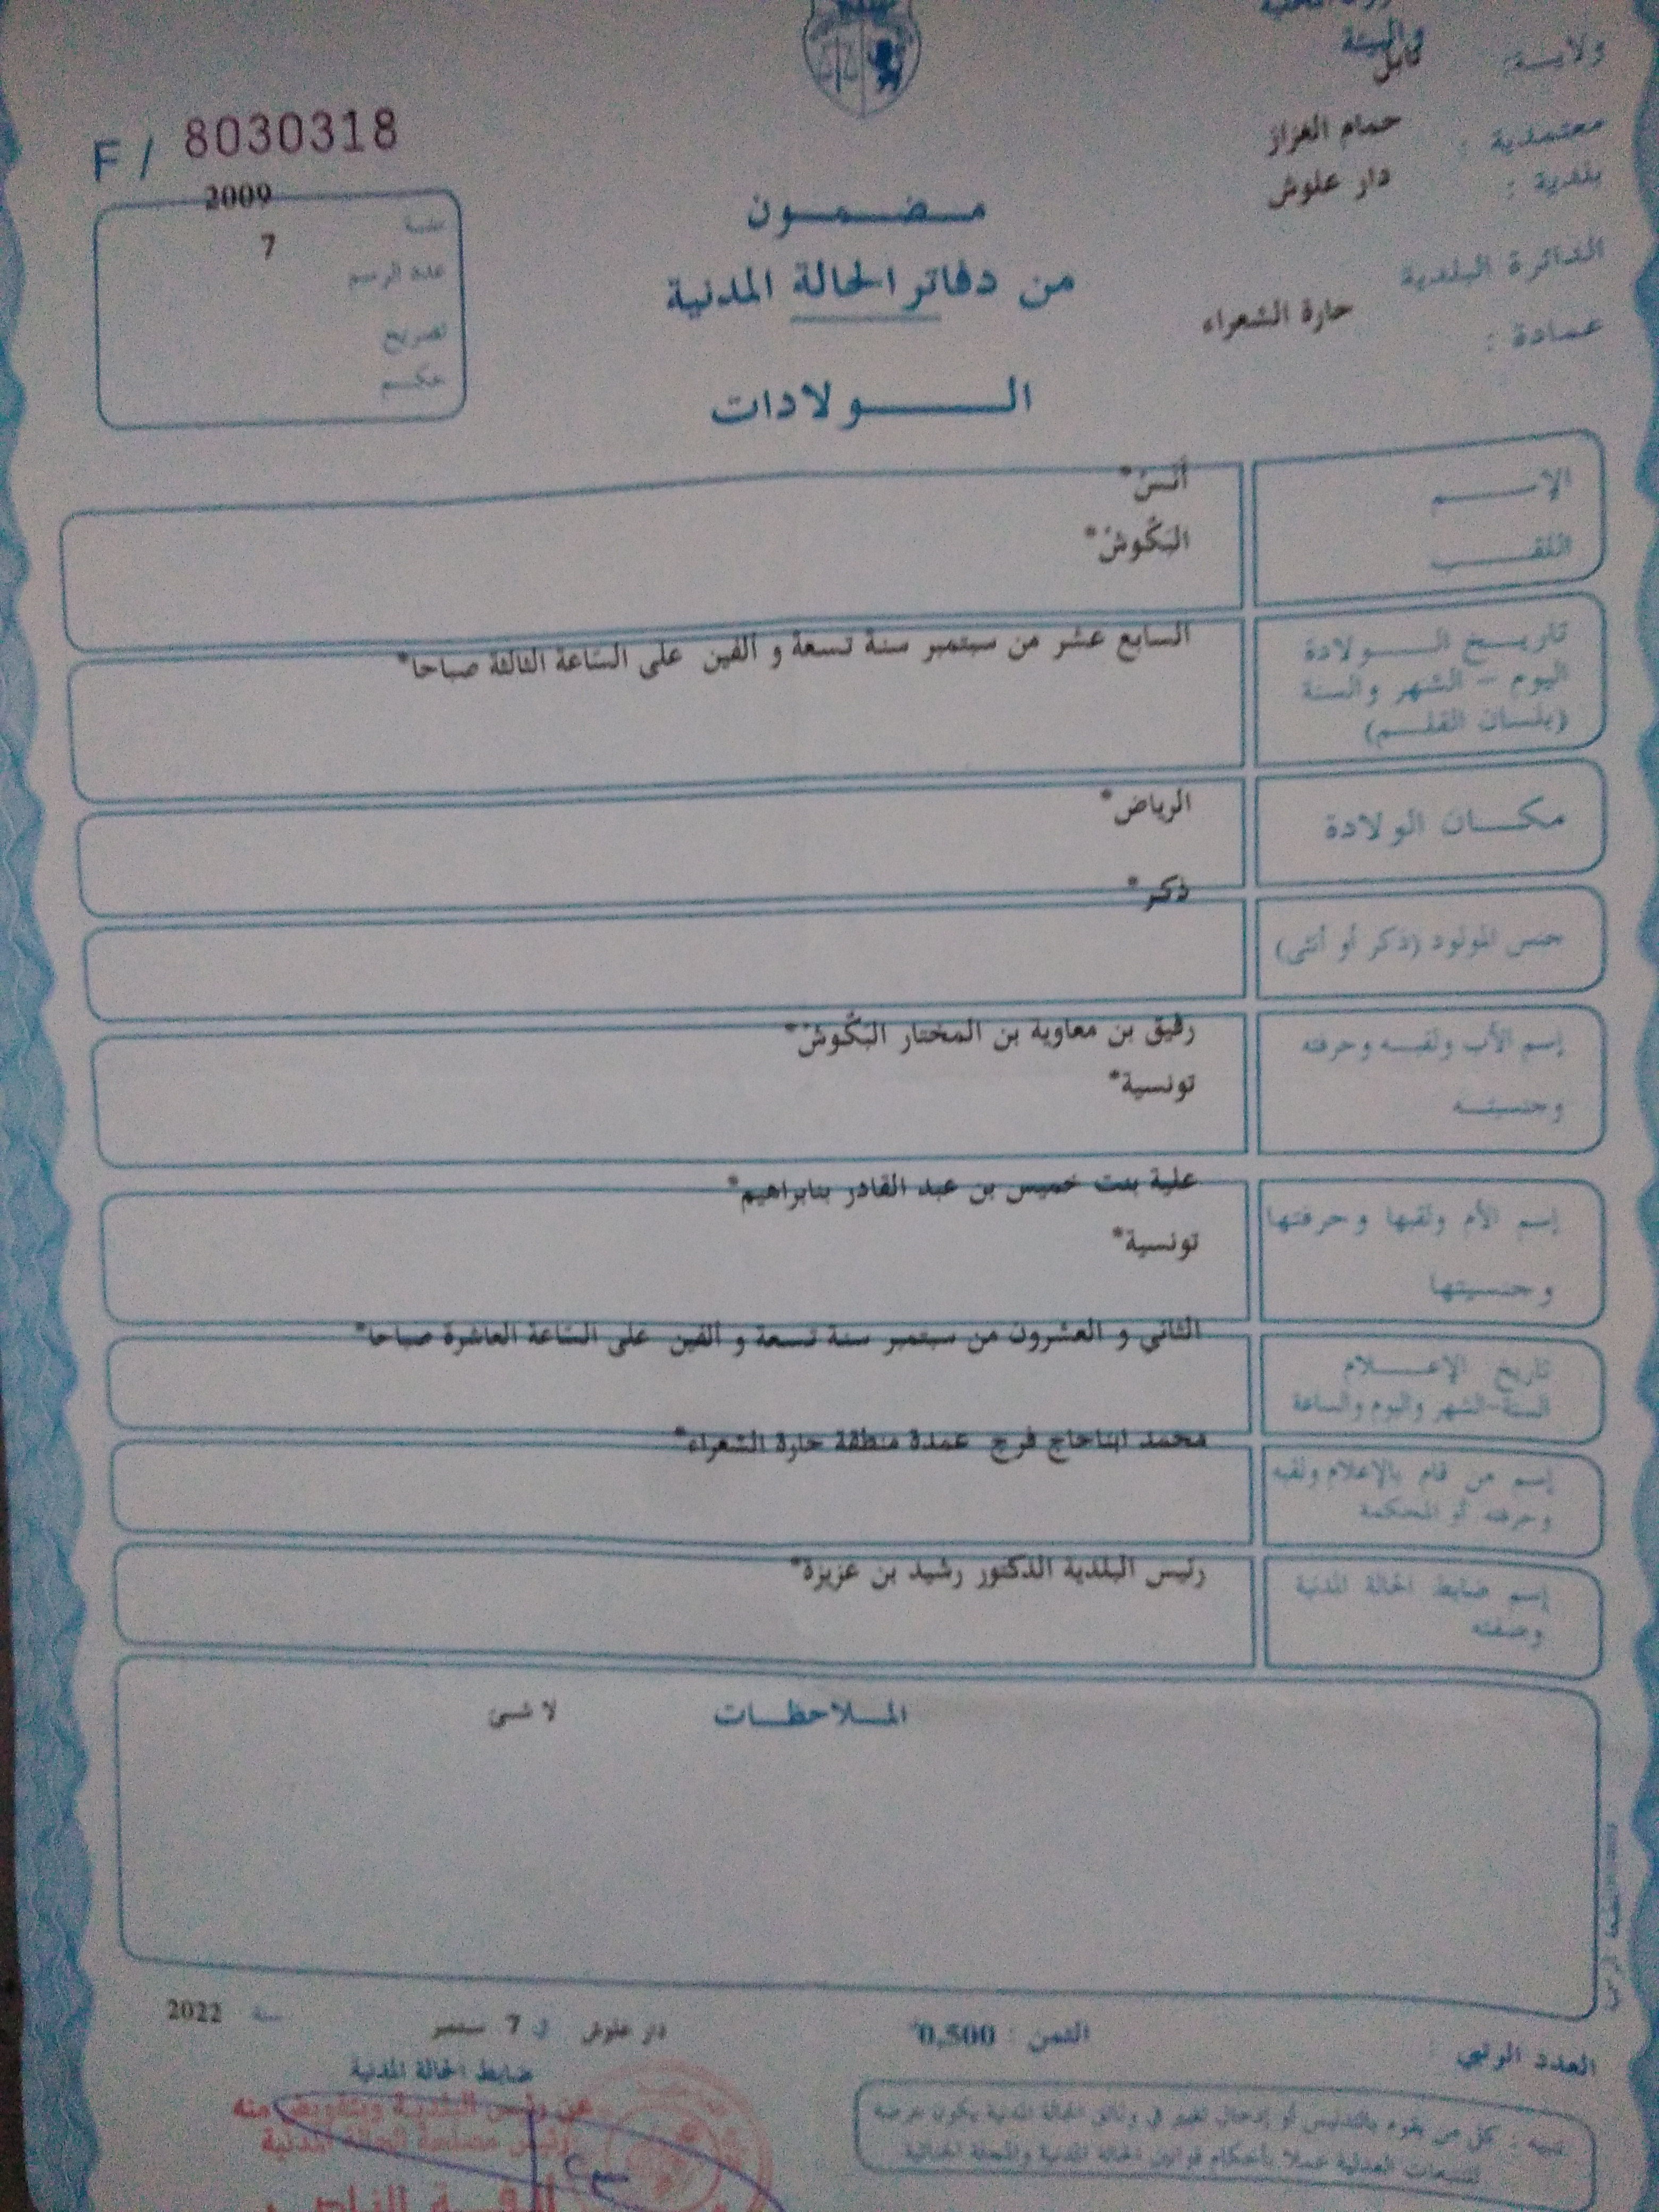 والبيئة
ولايـــة: نابل
معتمدية : حمام الغزاز
بلدية : دار علوش
الدائرة البلدية
عمادة : حارة الشعراء
F / 8030318
سنة 2009
عدد الرسم 7
تصريح
حكـــم
مـــضـــمـــون
من دفاتر الحالة المدنية
الـــــولادات
الإســـــم أنس*
اللقـــــب البكّوش*
تاريـــخ الـــــولادة السابع عشر من سبتمبر سنة تسعة و ألفين على الساعة الثالثة صباحا*
اليوم – الشهر والسنة
(بلسان القلـــم)
مكـــان الولادة الرياض*
جنس المولود (ذكر أو أنثى) ذكر*
إسم الأب ولقبـــه وحرفته رفيق بن معاوية بن المختار البكّوش*
وجنسيتـــه تونسية*
إسم الأم ولقبها وحرفتها علية بنت خميس بن عبد القادر بنابراهيم*
وجنسيتها تونسية*
تاريخ الإعـــــلام الثاني و العشرون من سبتمبر سنة تسعة و ألفين على الساعة العاشرة صباحا*
السنة-الشهر واليوم والساعة
إسم من قام بالإعلام ولقبه محمد ابناحاج فرج عمدة منطقة حارة الشعراء*
وحرفته أو المحكمة
إسم ضابط الحالة المدنية رئيس البلدية الدكتور رشيد بن عزيزة*
وصفته
المـــلاحظـــات لا شئ
العدد الرتبي :
الثمن : 0,500*
دار علوش في 7 سبتمبر سنة 2022
ضابط الحالة المدنية
عن رئيس البلدية وبتفويض منه
رئيس مصلحة الحالة المدنية
تنبيه : كل من يقوم بالتدليس أو إدخال تغيير في وثائق الحالة المدنية يكون عرضة
للتتبعات العدلية عملا بأحكام قوانين الحالة المدنية والمجلة الجنائية